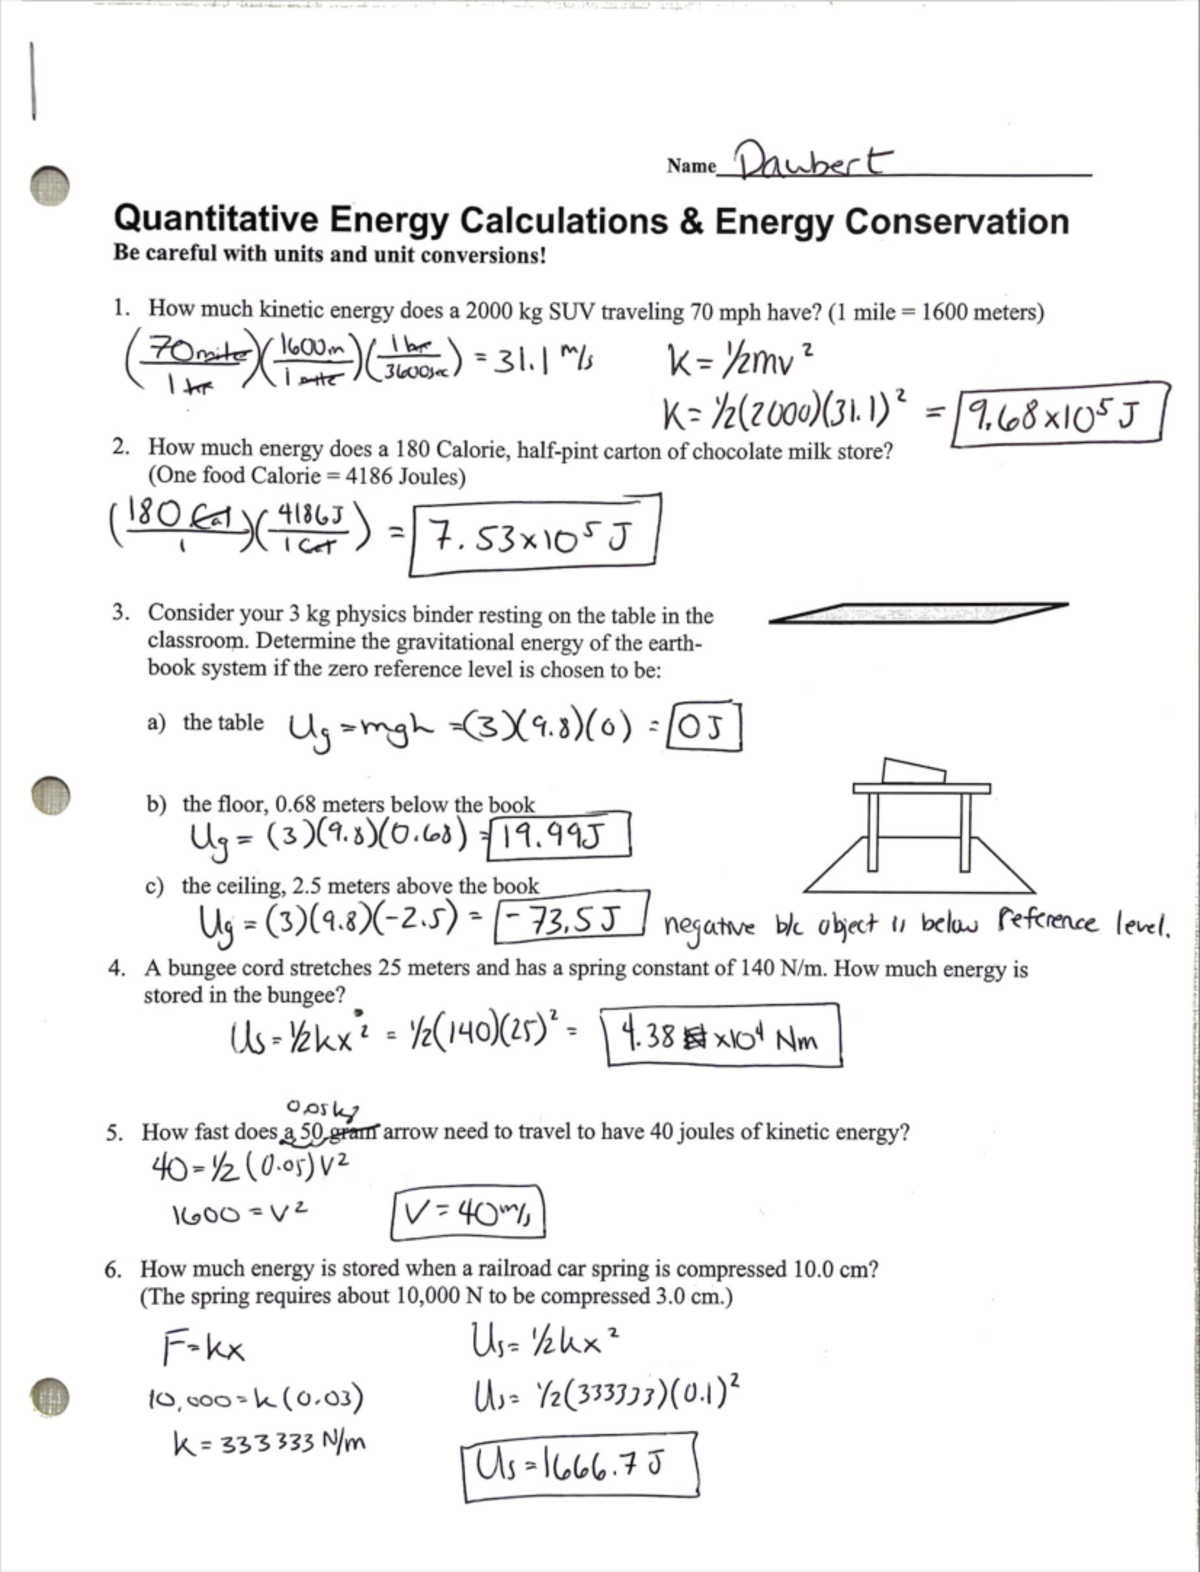 Name Daubert
Quantitative Energy Calculations & Energy Conservation
Be careful with units and unit conversions!
1. How much kinetic energy does a 2000 kg SUV traveling 70 mph have? (1 mile = 1600 meters)
(70 mile / 1 hr)(1600m / 1 mile)(1 hr / 3600sec) = 31.1 m/s
K = ½mv²
K = ½(2000)(31.1)² = 9.68x10⁵ J
2. How much energy does a 180 Calorie, half-pint carton of chocolate milk store?
(One food Calorie = 4186 Joules)
(180 Cal / 1)(4186J / 1 Cal) = 7.53x10⁵ J
3. Consider your 3 kg physics binder resting on the table in the
classroom. Determine the gravitational energy of the earth-
book system if the zero reference level is chosen to be:
a) the table Ug = mgh = (3)(9.8)(0) = 0 J
b) the floor, 0.68 meters below the book
Ug = (3)(9.8)(0.68) = 19.99J
c) the ceiling, 2.5 meters above the book
Ug = (3)(9.8)(-2.5) = -73.5 J negative b/c object is below reference level.
4. A bungee cord stretches 25 meters and has a spring constant of 140 N/m. How much energy is
stored in the bungee?
Us = ½kx² = ½(140)(25)² = 4.38 x10⁴ Nm
0.05kg
5. How fast does a 50 gram arrow need to travel to have 40 joules of kinetic energy?
40 = ½(0.05)v²
1600 = v² V = 40 m/s
6. How much energy is stored when a railroad car spring is compressed 10.0 cm?
(The spring requires about 10,000 N to be compressed 3.0 cm.)
F = kx
10,000 = k(0.03)
k = 333333 N/m
Us = ½kx²
Us = ½(333333)(0.1)²
Us = 1666.7 J